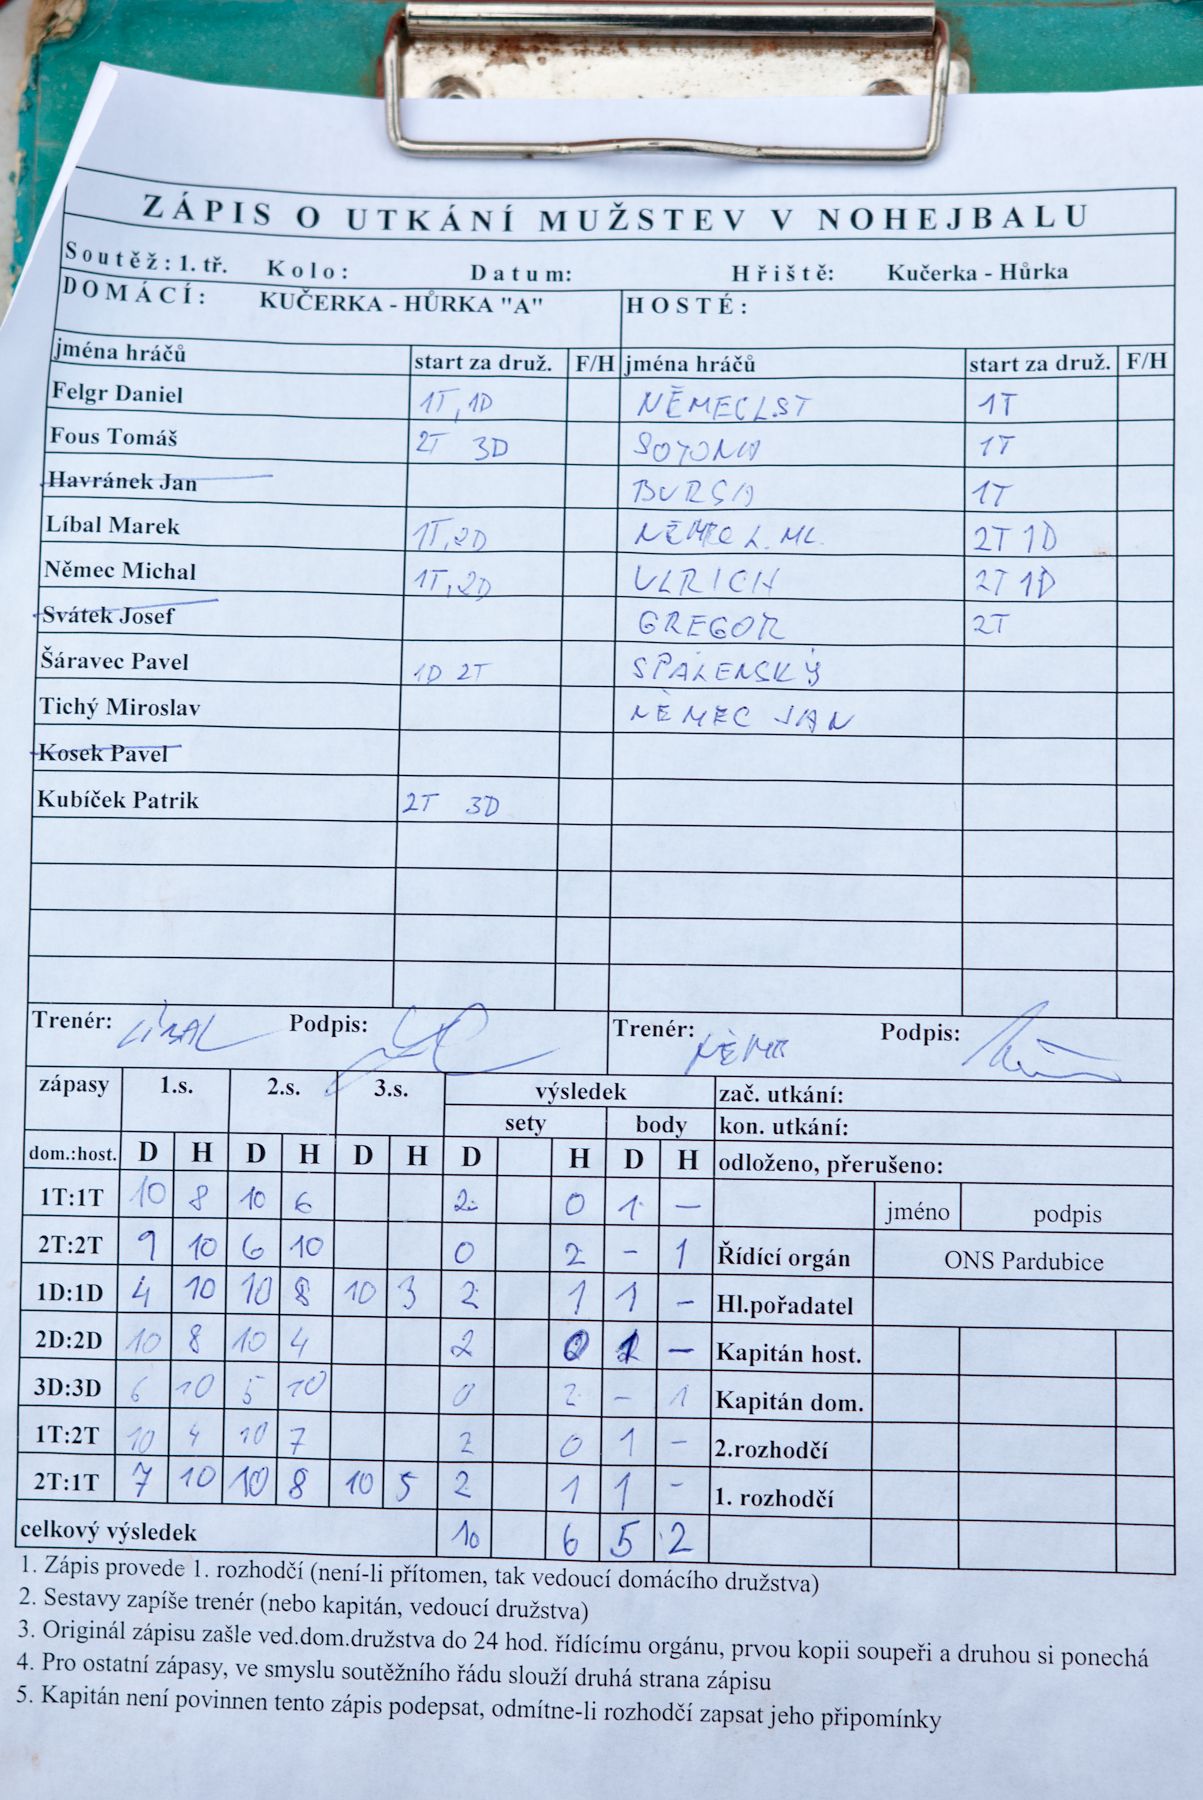 ZÁPIS O UTKÁNÍ MUŽSTEV V NOHEJBALU
Soutěž: 1. tř. Kolo: Datum: Hřiště: Kučerka - Hůrka
DOMÁCÍ: KUČERKA - HŮRKA "A" HOSTÉ:
jména hráčů start za druž. F/H jména hráčů start za druž. F/H
Felgr Daniel 1T, 1D NĚMEC L. ST 1T
Fous Tomáš 2T 3D SOTONA 1T
Havránek Jan BURSA 1T
Líbal Marek 1T, 2D NĚMEC L. ML. 2T 1D
Němec Michal 1T, 2D ULRICH 2T 1D
Svátek Josef GREGOR 2T
Šáravec Pavel 1D 2T SPÁLENSKÝ
Tichý Miroslav NĚMEC JAN
Kosek Pavel
Kubíček Patrik 2T 3D
Trenér: LÍBAL Podpis: Trenér: NĚME Podpis:
zápasy 1.s. 2.s. 3.s. výsledek zač. utkání:
sety body kon. utkání:
dom.:host. D H D H D H D H D H odloženo, přerušeno:
1T:1T 10 8 10 6 2 0 1 – jméno podpis
2T:2T 9 10 6 10 0 2 – 1 Řídící orgán ONS Pardubice
1D:1D 4 10 10 8 10 3 2 1 1 – Hl.pořadatel
2D:2D 10 8 10 4 2 0 1 – Kapitán host.
3D:3D 6 10 5 10 0 2 – 1 Kapitán dom.
1T:2T 10 4 10 7 2 0 1 – 2.rozhodčí
2T:1T 7 10 10 8 10 5 2 1 1 – 1. rozhodčí
celkový výsledek 10 6 5 2
1. Zápis provede 1. rozhodčí (není-li přítomen, tak vedoucí domácího družstva)
2. Sestavy zapíše trenér (nebo kapitán, vedoucí družstva)
3. Originál zápisu zašle ved.dom.družstva do 24 hod. řídícímu orgánu, prvou kopii soupeři a druhou si ponechá
4. Pro ostatní zápasy, ve smyslu soutěžního řádu slouží druhá strana zápisu
5. Kapitán není povinnen tento zápis podepsat, odmítne-li rozhodčí zapsat jeho připomínky